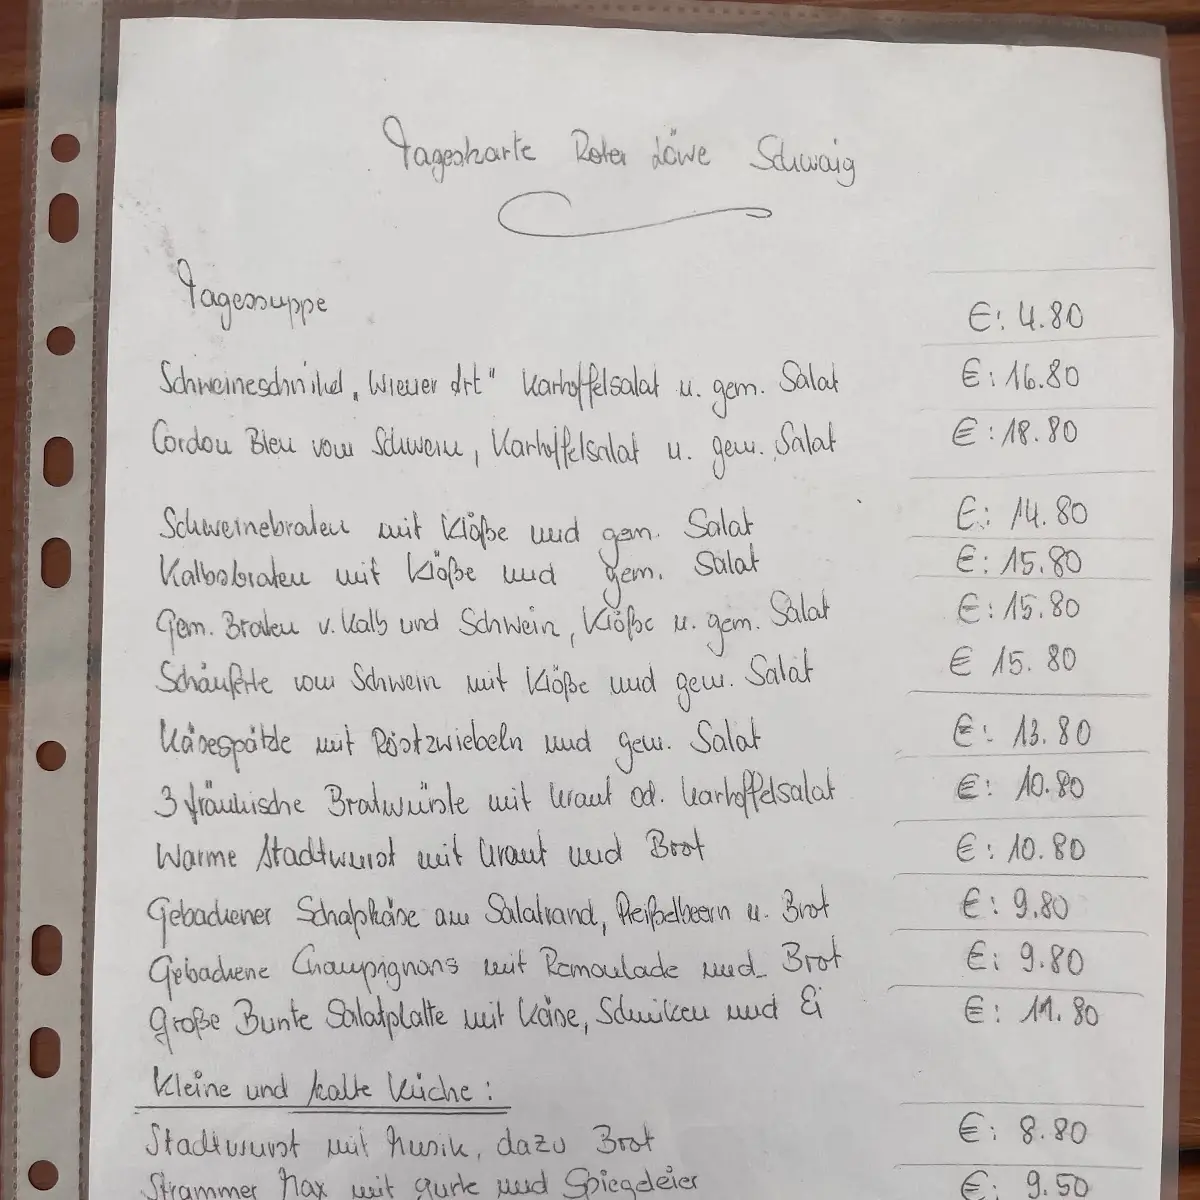 Tageskarte Roter Löwe Schwaig
Tagessuppe €: 4.80
Schweineschnitzel „Wiener Art" Kartoffelsalat u. gem. Salat €: 16.80
Cordon Bleu vom Schwein, Kartoffelsalat u. gem. Salat €: 18.80
Schweinebraten mit Klöße und gem. Salat €: 14.80
Kalbsbraten mit Klöße und gem. Salat €: 15.80
Gem. Braten v. Kalb und Schwein, Klöße u. gem. Salat €: 15.80
Schäuferte vom Schwein mit Klöße und gem. Salat € 15.80
Käsespätzle mit Röstzwiebeln und gem. Salat €: 13.80
3 fränkische Bratwürste mit Kraut od. Kartoffelsalat €: 10.80
Warme Stadtwurst mit Kraut und Brot €: 10.80
Gebackener Schafskäse am Salatrand, Preißelbeern u. Brot €: 9.80
Gebackene Champignons mit Remoulade und Brot €: 9.80
Große Bunte Salatplatte mit Käse, Schinken und Ei €: 11.80
Kleine und kalte Küche:
Stadtwurst mit Musik, dazu Brot €: 8.80
Strammer Max mit Gurke und Spiegeleier €: 9.50